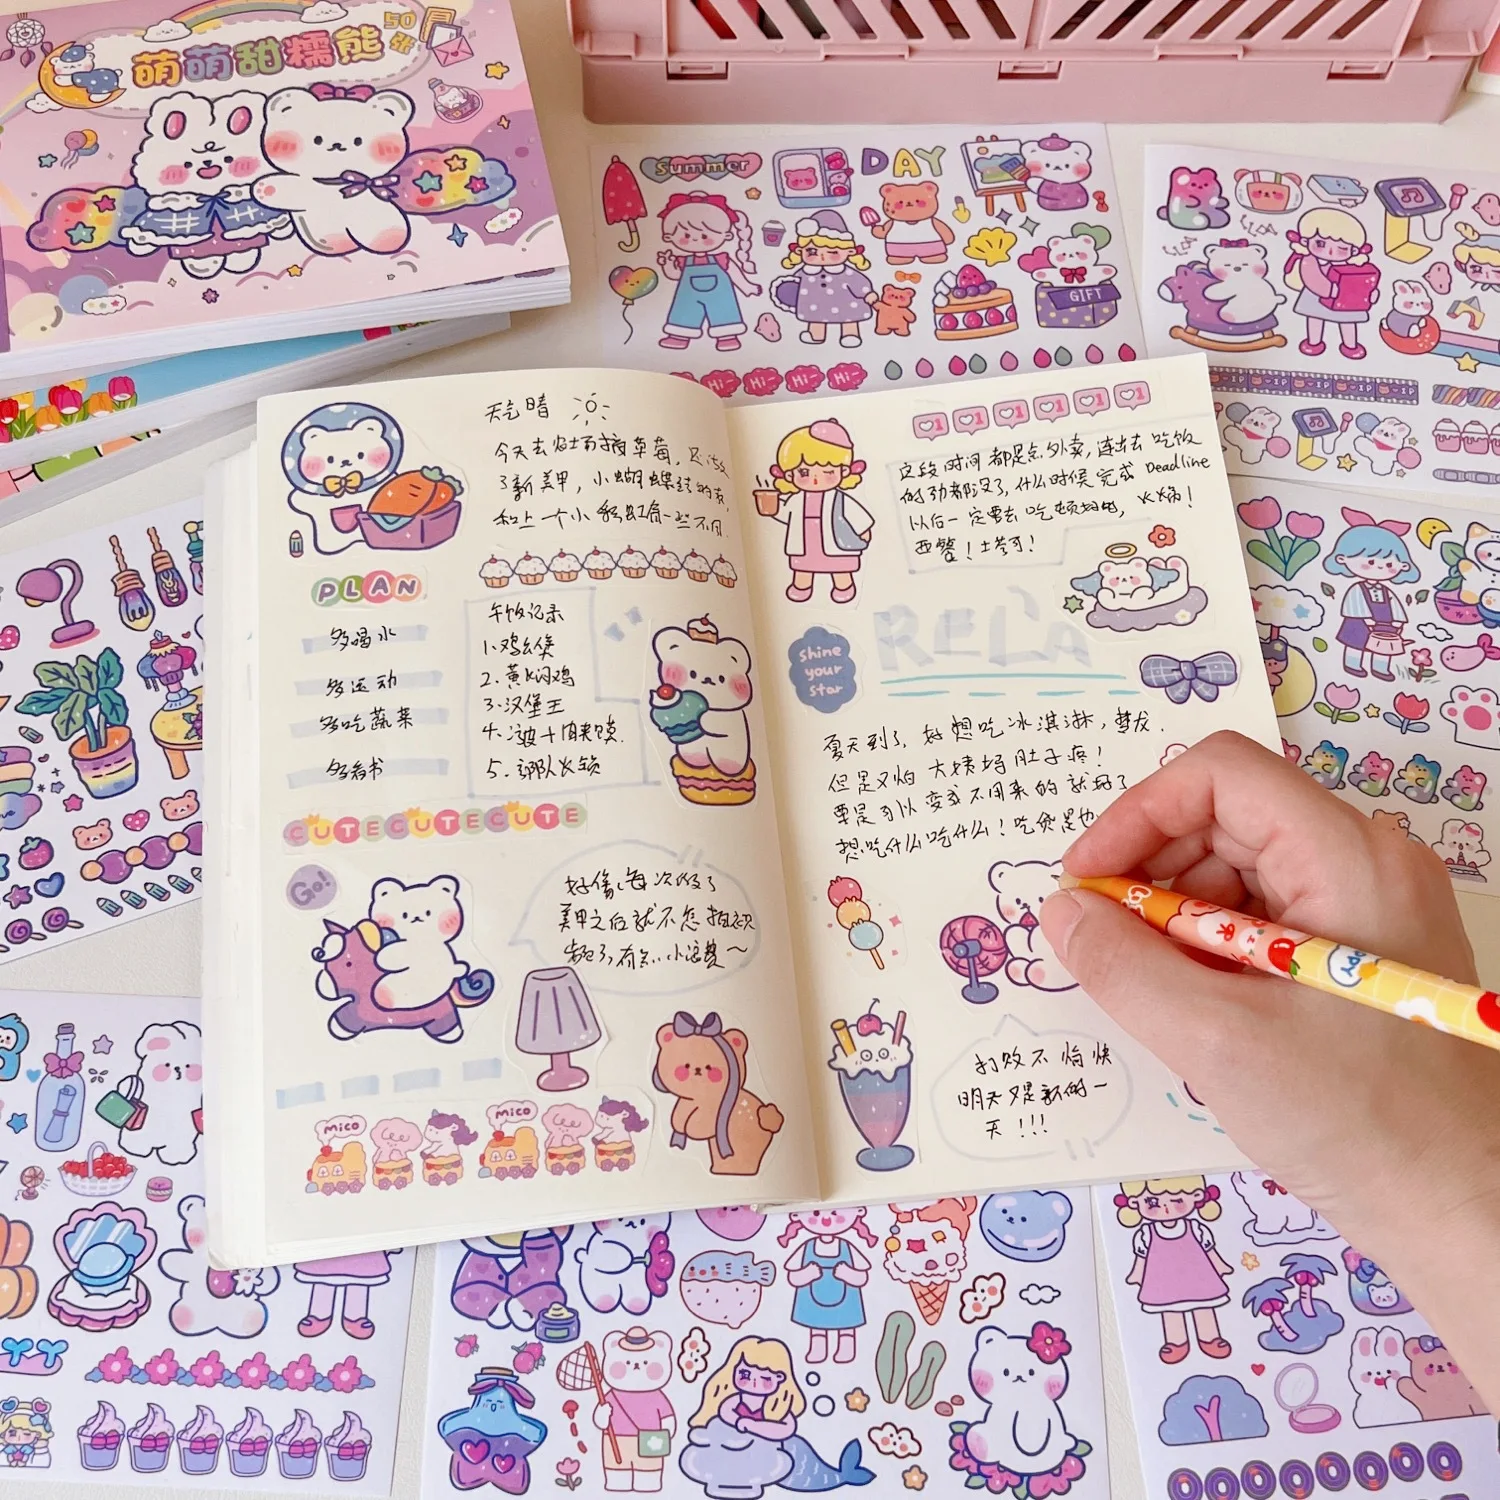 萌萌甜糯熊
50张
Summer
DAY
GIFT
Hi~ Hi~ Hi~ Hi~
天气晴
今天去农场摘草莓,
了新美甲,小蝴蝶结的
和上一个小彩虹有一些不同.
PLAN
多喝水
多运动
多吃蔬菜
多看书
午饭记录
1.鸡公煲
2.黄焖鸡
3.汉堡王
4.凉皮+肉夹馍.
5.部队火锅
CUTECUTECUTE
Go!
好像每次做了
美甲之后就不怎
了,有点小浪费~
mico
mico
1 1 1 1 1 1
这段时间都是点外卖,连出去吃饭
的劲都没了,什么时候完成 Deadline
以后一定要去吃顿好的,火锅!
西餐!土耳其!
shine
your
star
RELA
夏天到了,好想吃冰淇淋,梦龙.
但是又怕大姨妈肚子疼!
要是可以变成不用来的就好了
想吃什么吃什么!吃货是
打败不愉快
明天又是新的一
天!!!